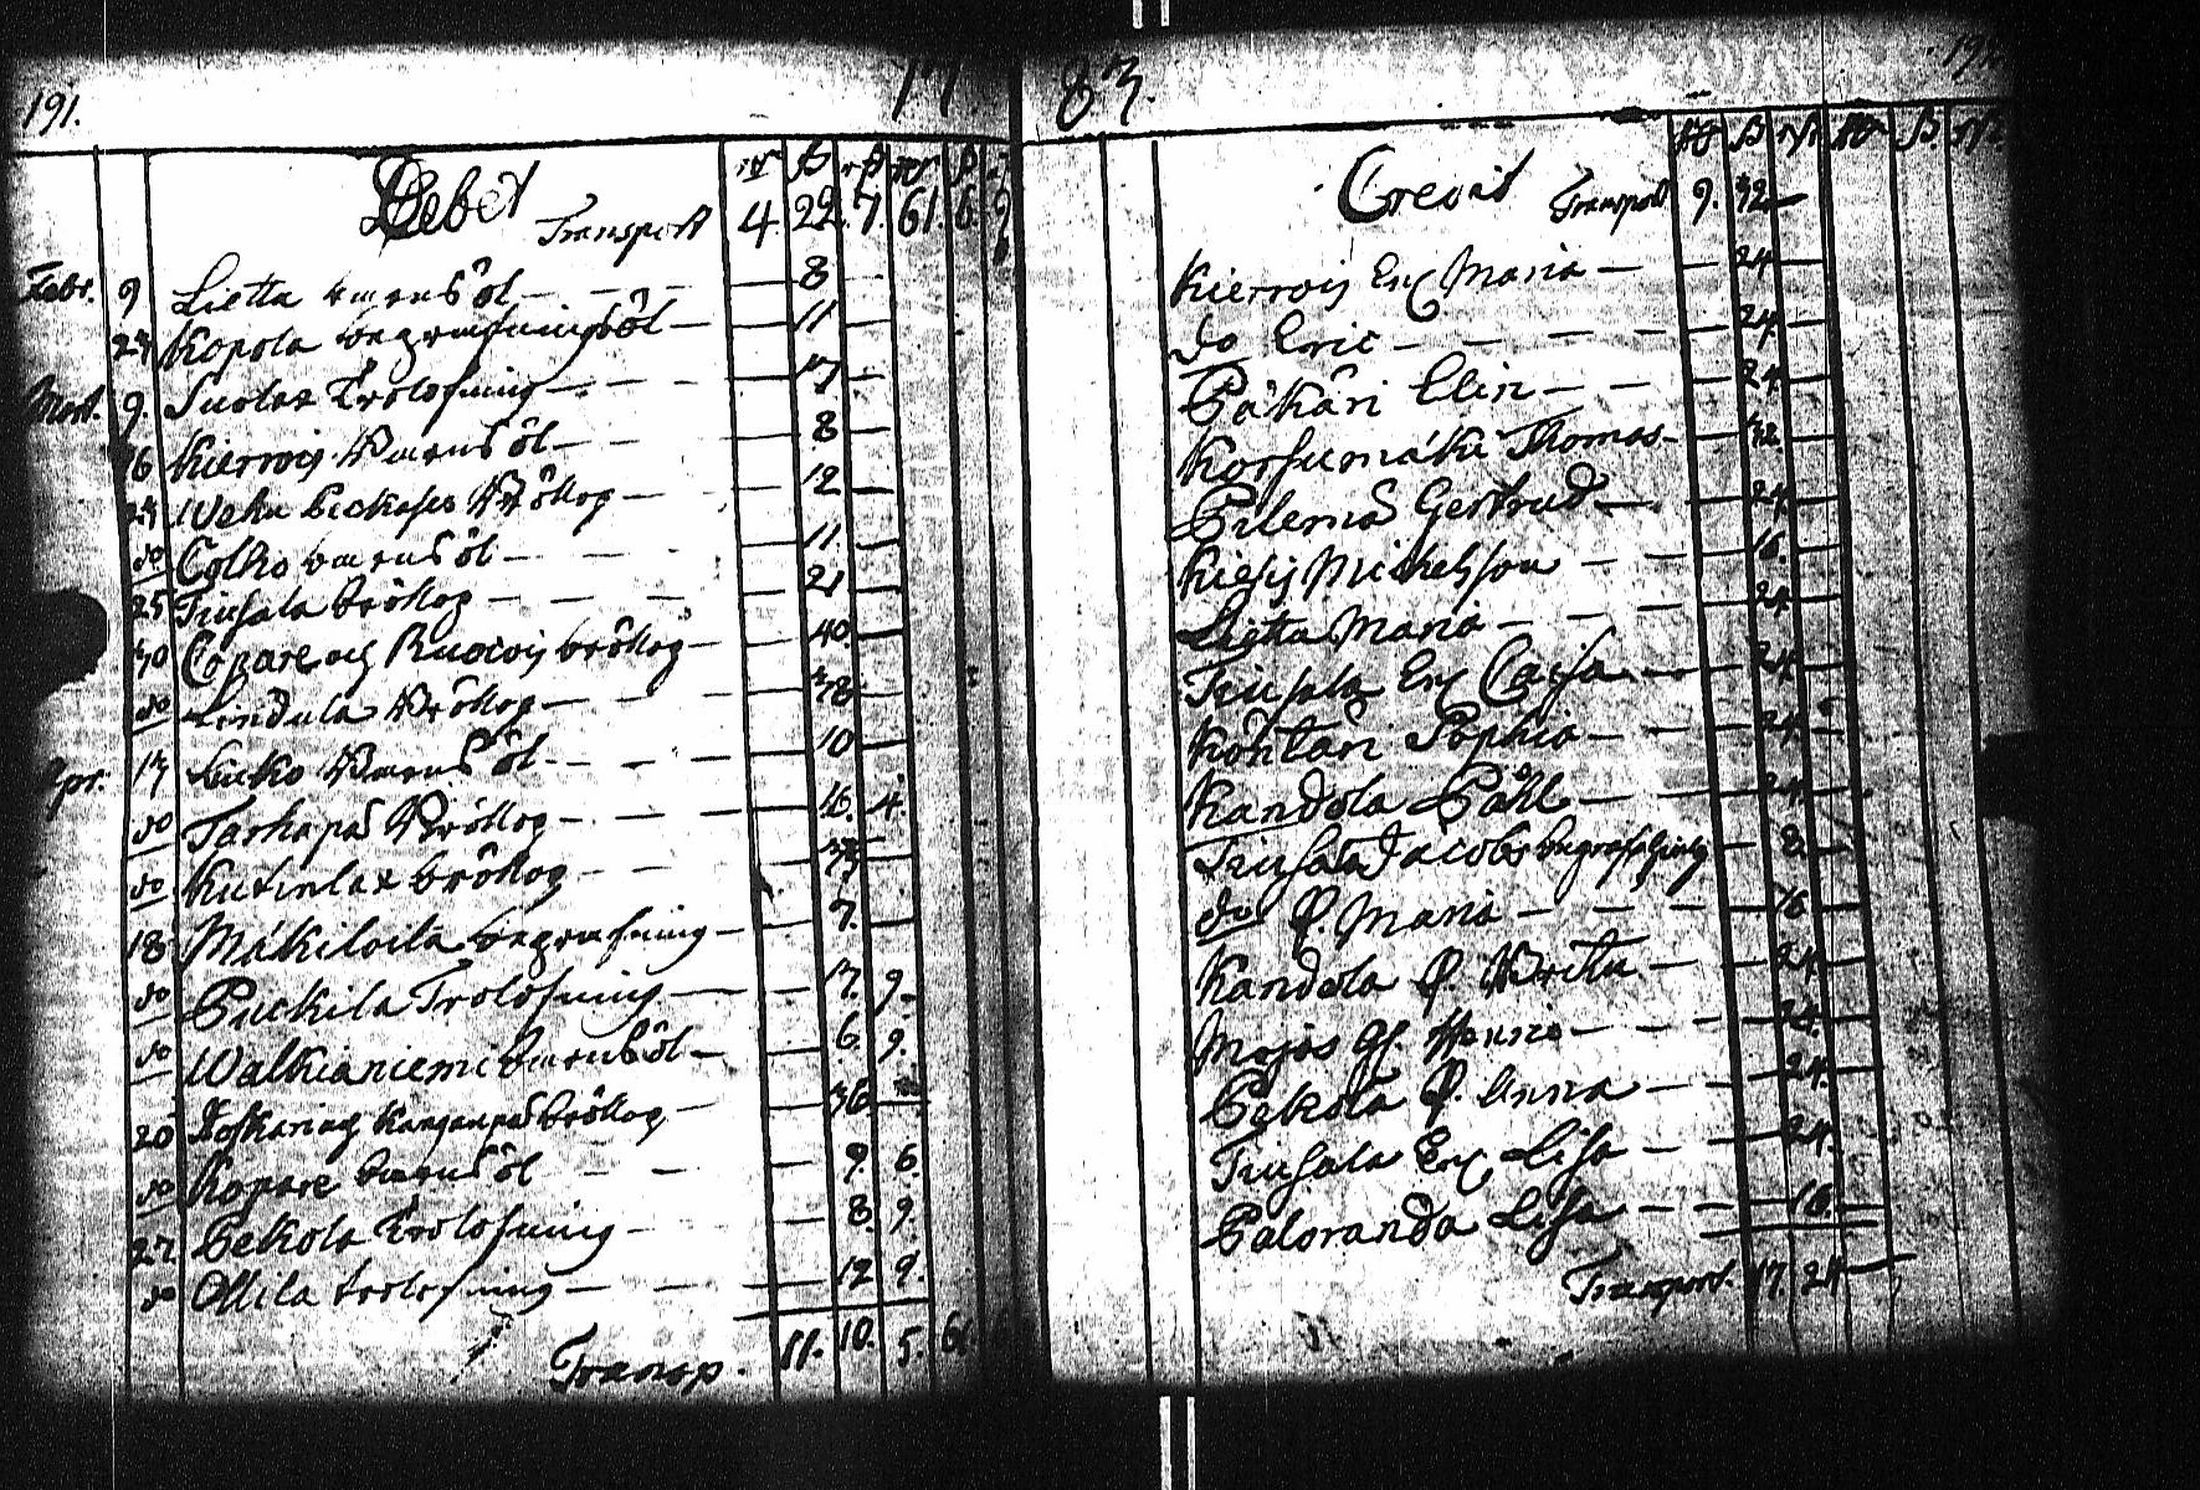 191. 17
Debet
Rdr ß rß Rdr ß
Transport 4. 22. 7. 61. 6. 9
Febr. 9 Lietta barns öl — 8 —
24 Kopola begrafningsöl — 11 —
Mart. 9. Suolax Trolofning — 17 —
16 Kierrois Barns öl — 8 —
24 Wehu Bröllop — 12 —
do barns öl — 11. —
25 Tiusala bröllop — 21 —
30 Copare och bröllop — 40. —
do Lindula Bröllop — 38 —
Apr. 17 Barns öl — 10 —
do Tarhapä Bröllop — 16. 4.
do Kutinlax bröllop — —
18 Mäkiloila begrafning — 7. —
do Puckila Trolofning — 17. 9.
do Walkianiemi barnsöl — 6. 9.
20 och Kanganpä bröllop — 36 —
do Kopare barns öl — 9. 6.
27 Pekola Trolofning — 8. 9.
do Ollila trolofning — 12 9.
Transp. 11. 10. 5. 61.
83.
Credit
Rdr ß rß Rdr ß rß
Transport 9. 32. —
Kierrois Erici Maria — 24 —
do Eric — 24 —
Päkäri Elin — 24 —
Korfumäki Thomas — 32. —
Pilemä Gertrud — 24. —
Michelsson — 16. —
Lietta Maria — 24. —
Tiusala Erici Caisa — 24 —
Kontari Sophia — 24. —
Kandola Påhl — 24. —
Tiusala Jacobs — 8. —
do Maria — 16 —
Kandola Britta — 24 —
Mojas — 24. —
Pekola Anna — 24. —
Tiusala Erici Lisa — 24. —
Paloranda Lisa — 16. —
Transport. 17. 24 —